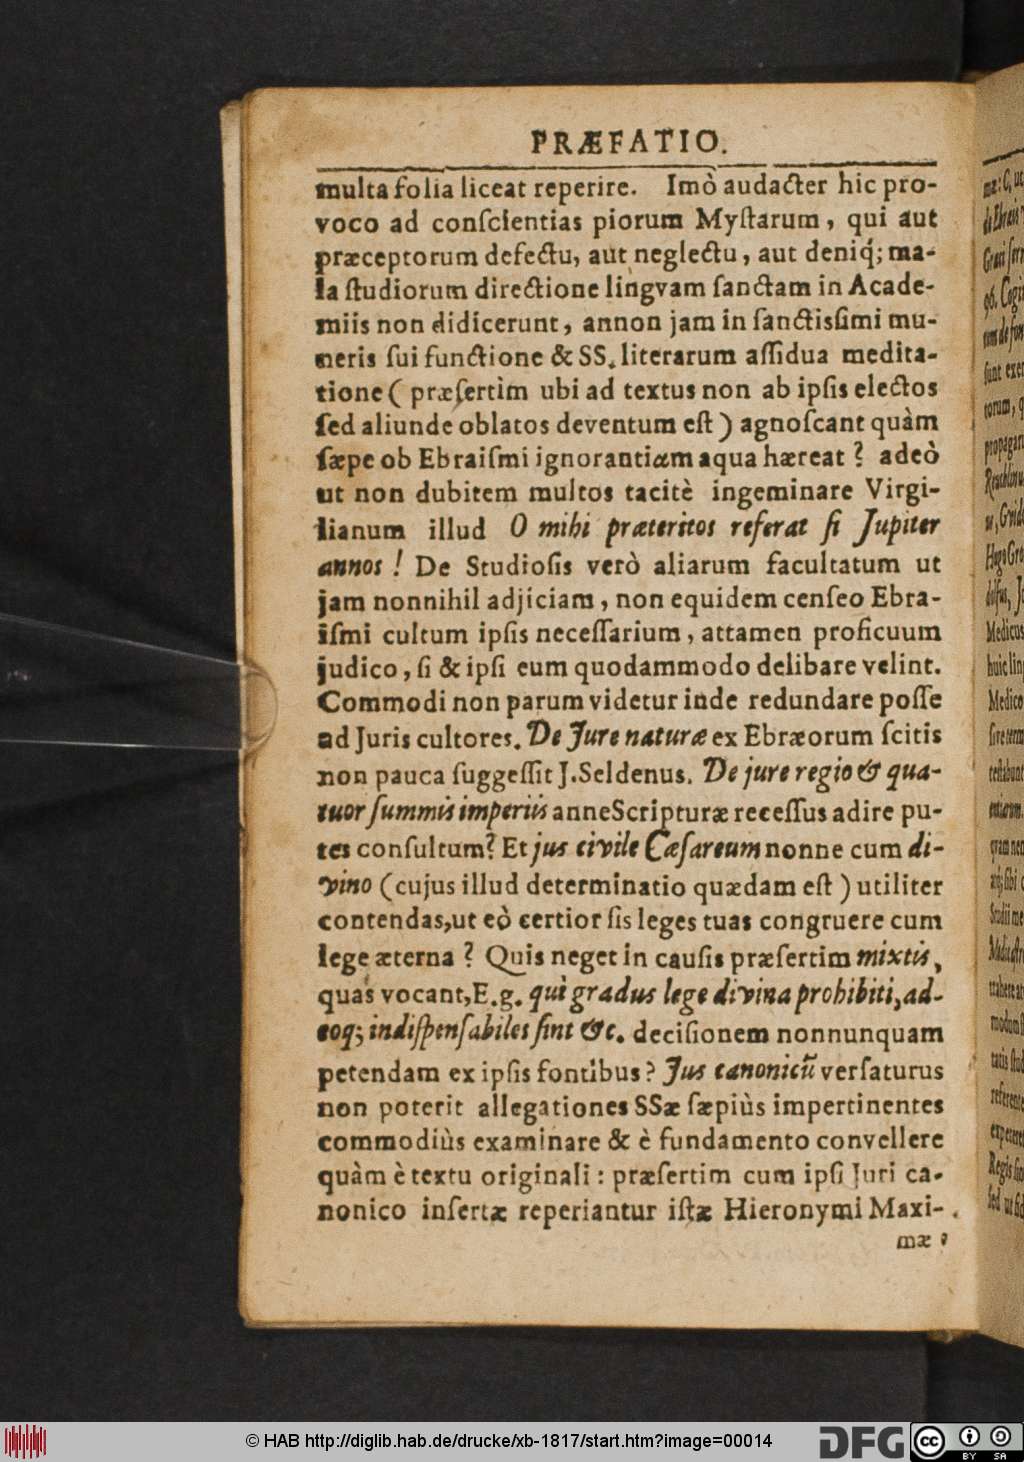 PRÆFATIO.
multa folia liceat reperire. Imò audacter hic pro-
voco ad conſcientias piorum Myſtarum, qui aut
præceptorum defectu, aut neglectu, aut deniq́; ma-
la ſtudiorum directione lingvam ſanctam in Acade-
miis non didicerunt, annon jam in ſanctisſimi mu-
neris ſui functione & SS. literarum aſſidua medita-
tione ( præſertim ubi ad textus non ab ipſis electos
ſed aliunde oblatos deventum eſt ) agnoſcant quàm
ſæpe ob Ebraiſmi ignorantiam aqua hæreat ? adeò
ut non dubitem multos tacitè ingeminare Virgi-
lianum illud O mihi præteritos referat ſi Jupiter
annos ! De Studioſis verò aliarum facultatum ut
jam nonnihil adjiciam, non equidem cenſeo Ebra-
iſmi cultum ipſis neceſſarium, attamen proficuum
judico, ſi & ipſi eum quodammodo delibare velint.
Commodi non parum videtur inde redundare poſſe
ad Juris cultores. De Jure naturæ ex Ebræorum ſcitis
non pauca ſuggeſſit J. Seldenus. De jure regio & qua-
tuor ſummis imperiis anne Scripturæ receſſus adire pu-
tes conſultum? Et jus civile Cæſareum nonne cum di-
vino (cujus illud determinatio quædam eſt ) utiliter
contendas, ut eò certior ſis leges tuas congruere cum
lege æterna ? Quis neget in cauſis præſertim mixtis,
quas vocant, E. g. qui gradus lege divina prohibiti, ad-
eoq; indiſpenſabiles ſint &c. deciſionem nonnunquam
petendam ex ipſis fontibus ? Jus canonicũ verſaturus
non poterit allegationes SSæ ſæpiùs impertinentes
commodiùs examinare & è fundamento convellere
quàm è textu originali : præſertim cum ipſi Juri ca-
nonico inſertæ reperiantur iſtæ Hieronymi Maxi-
mæ
© HAB http://diglib.hab.de/drucke/xb-1817/start.htm?image=00014
DFG
cc BY SA